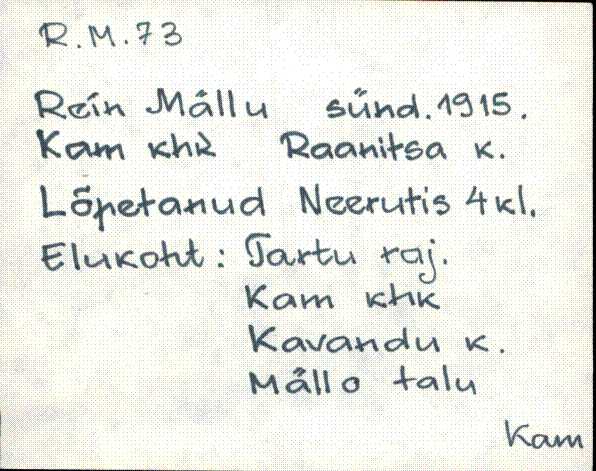 R.M.73
Rein Mällu sünd. 1915.
Kam khk Raanitsa k.
Lõpetanud Neerutis 4 kl.
Elukoht: Tartu raj.
Kam khk
Kavandu k.
Mällo talu
Kam